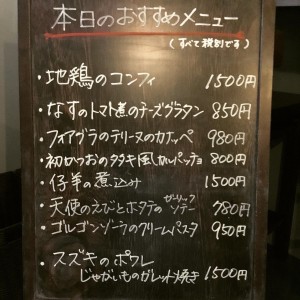 本日のおすすめメニュー
(すべて税別です)
・地鶏のコンフィ 1500円
・なすのトマト煮のチーズグラタン 850円
・フォアグラのテリーヌのカナッペ 980円
・初かつおのタタキ風カルパッチョ 800円
・仔羊の煮込み 1500円
・天使のえびとホタテのガーリックソテー 780円
・ゴルゴンゾーラのクリームパスタ 950円
・スズキのポワレ
じゃがいものガレット焼き 1500円